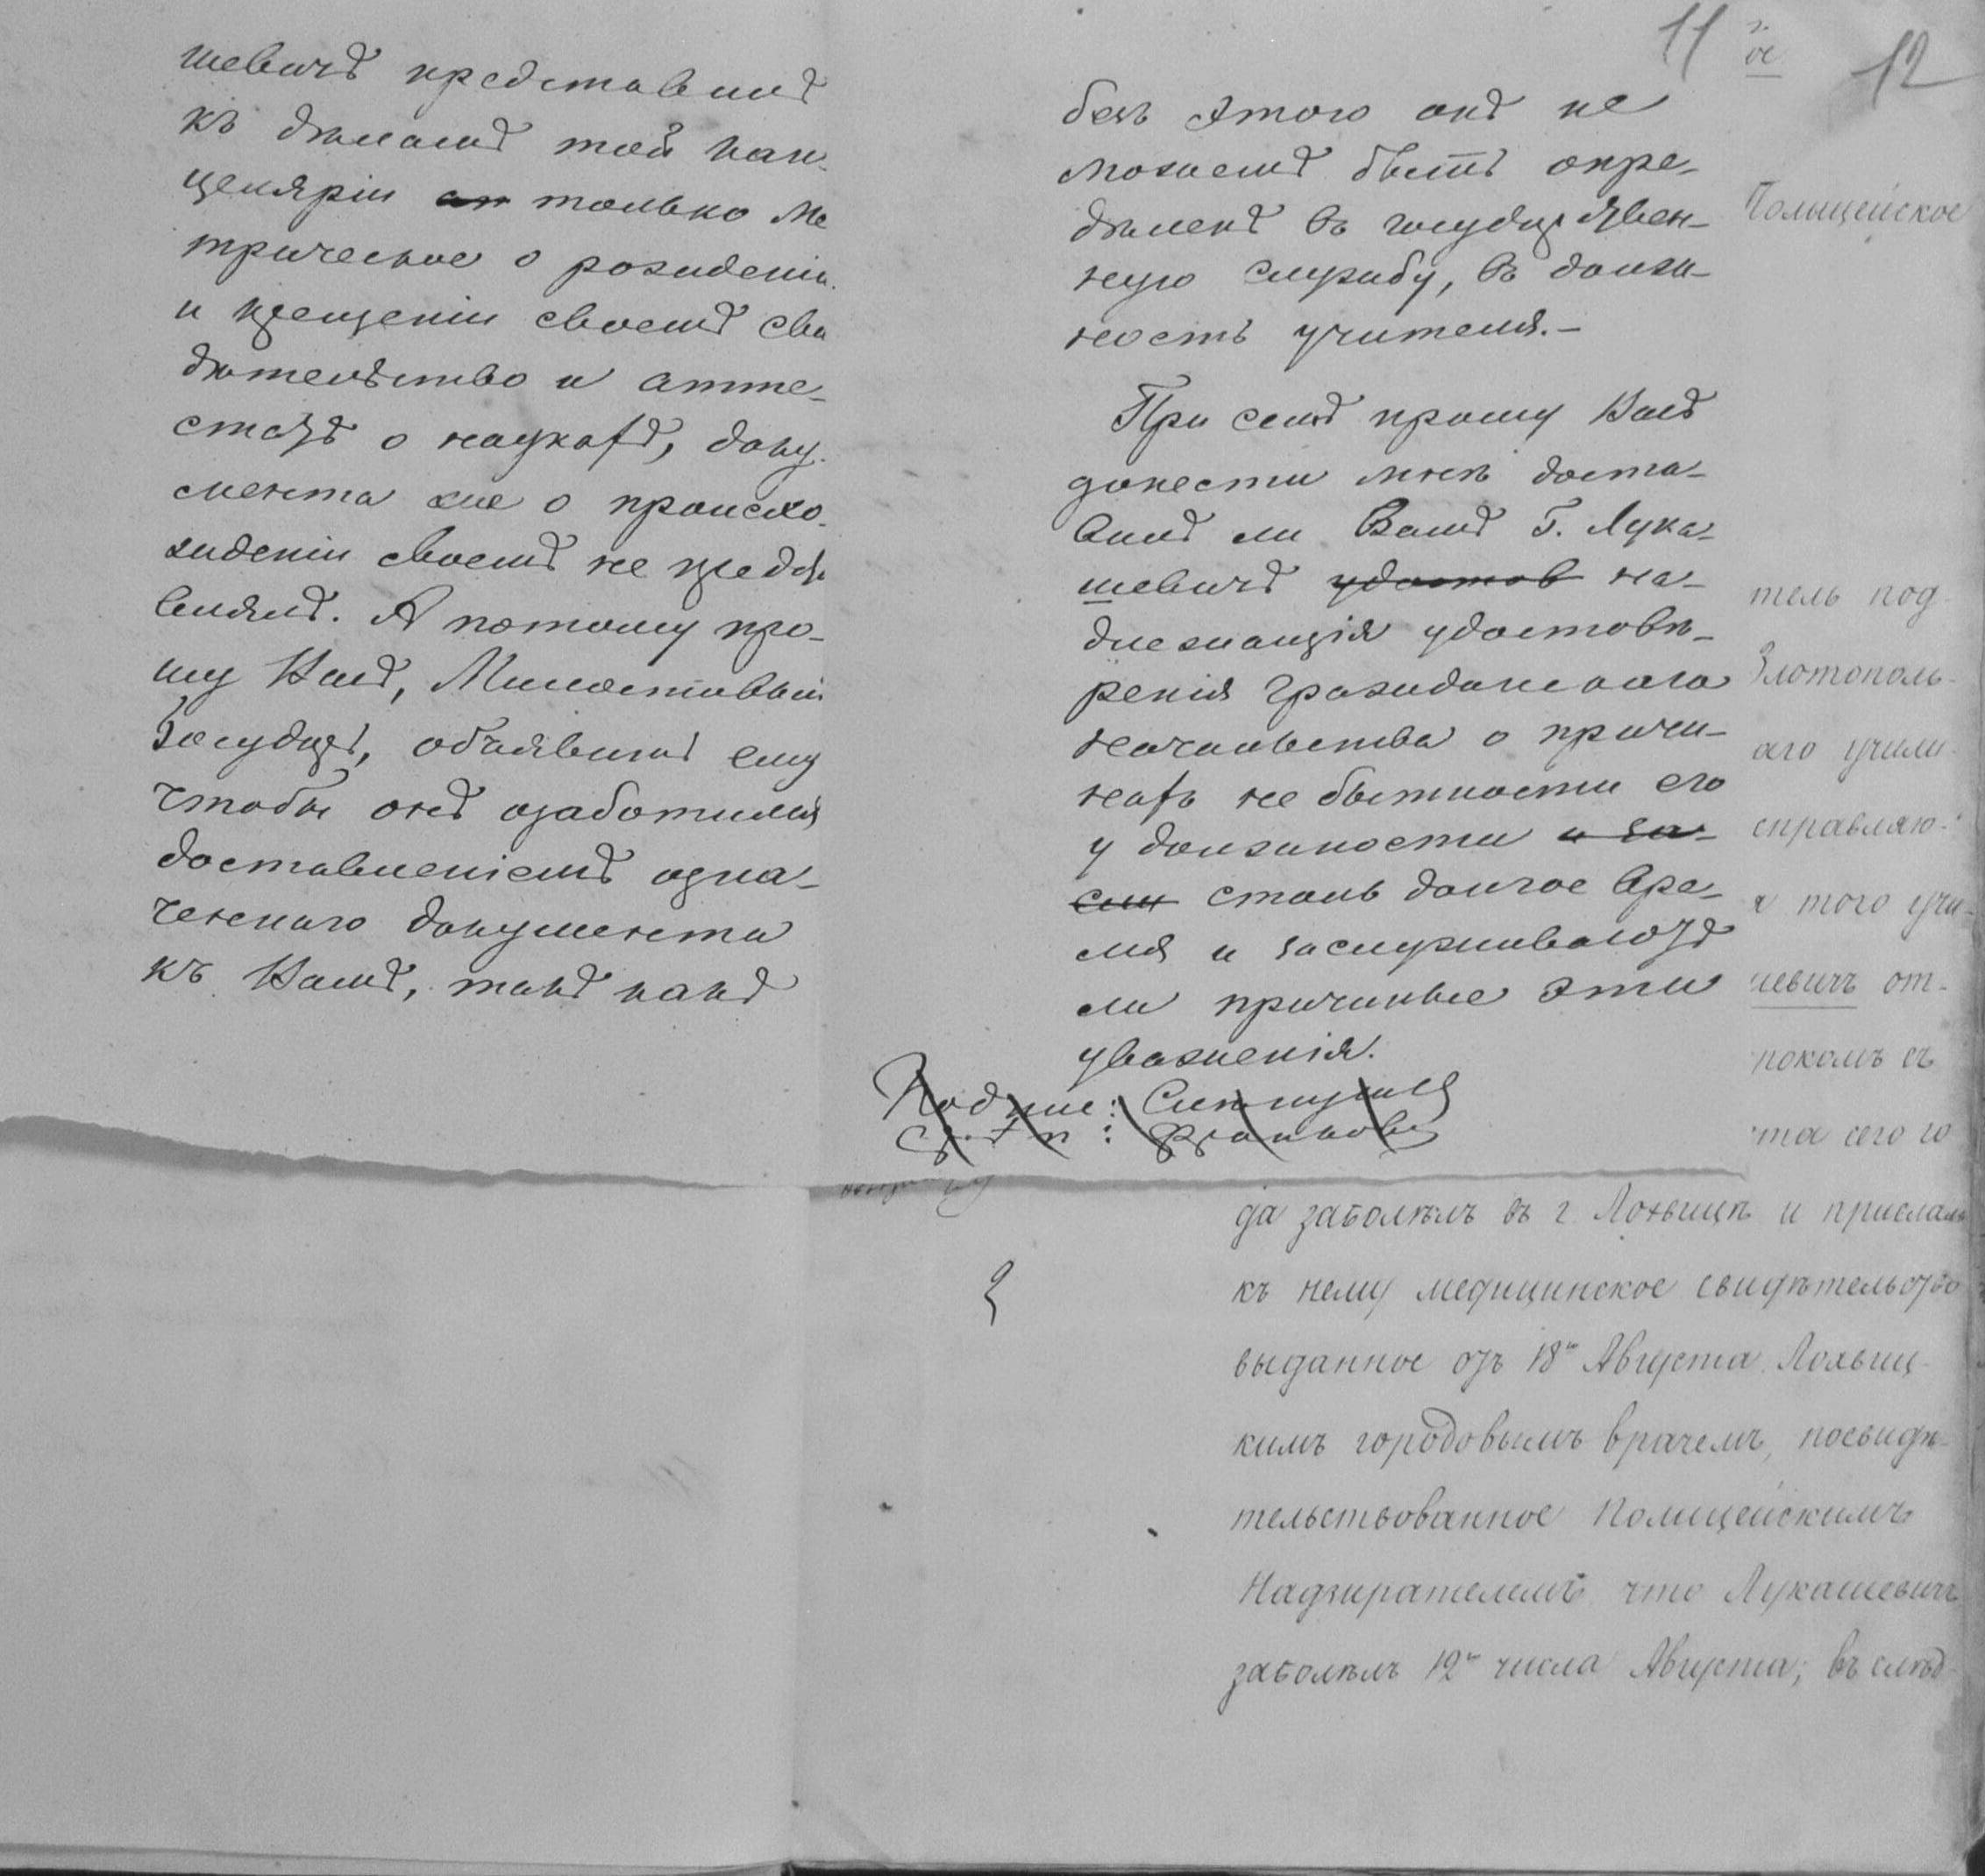 шевичъ представилъ
къ дѣламъ той кан-
целяріи только ме
трическое о рожденіи
и крещеніи своемъ сви
дѣтельство и атте-
статъ о наукахъ, доку-
мента же о происхо-
жденіи своемъ не предста
влялъ. А потому про-
шу Васъ, Милостивый
Государь, объявить ему
чтобы онъ озаботился
доставленіемъ озна-
ченнаго документа
къ Вамъ, такъ какъ
11
12
безъ этого онъ не
можетъ быть опре-
дѣленъ въ государствен-
ную службу, въ долж-
ность учителя.-
При семъ прошу Васъ
донести мнѣ доста-
вилъ ли Вамъ Г. Лука-
шевичъ удостов на-
длежащія удостовѣ-
ренія Гражданскаго
начальства о причи-
нахъ не бытности его
у должности и за-
сим столь долгое вре-
мя и заслуживаютъ
ли причины эти
уваженія.
Подпис:
Полицейское
тель под-
Златополь-
аго учили-
справляю-
я того учи-
шевичъ от-
та сего го
да заболѣлъ въ г. Лохвицѣ и прислалъ
къ нему медицинское свидѣтельство
выданное отъ 18го Августа Лохвиц-
кимъ городовымъ врачемъ, посвидѣ-
тельствованное Полицейскимъ
Надзирателемъ что Лукашевичъ
заболѣлъ 12го числа Августа; въ слѣд-